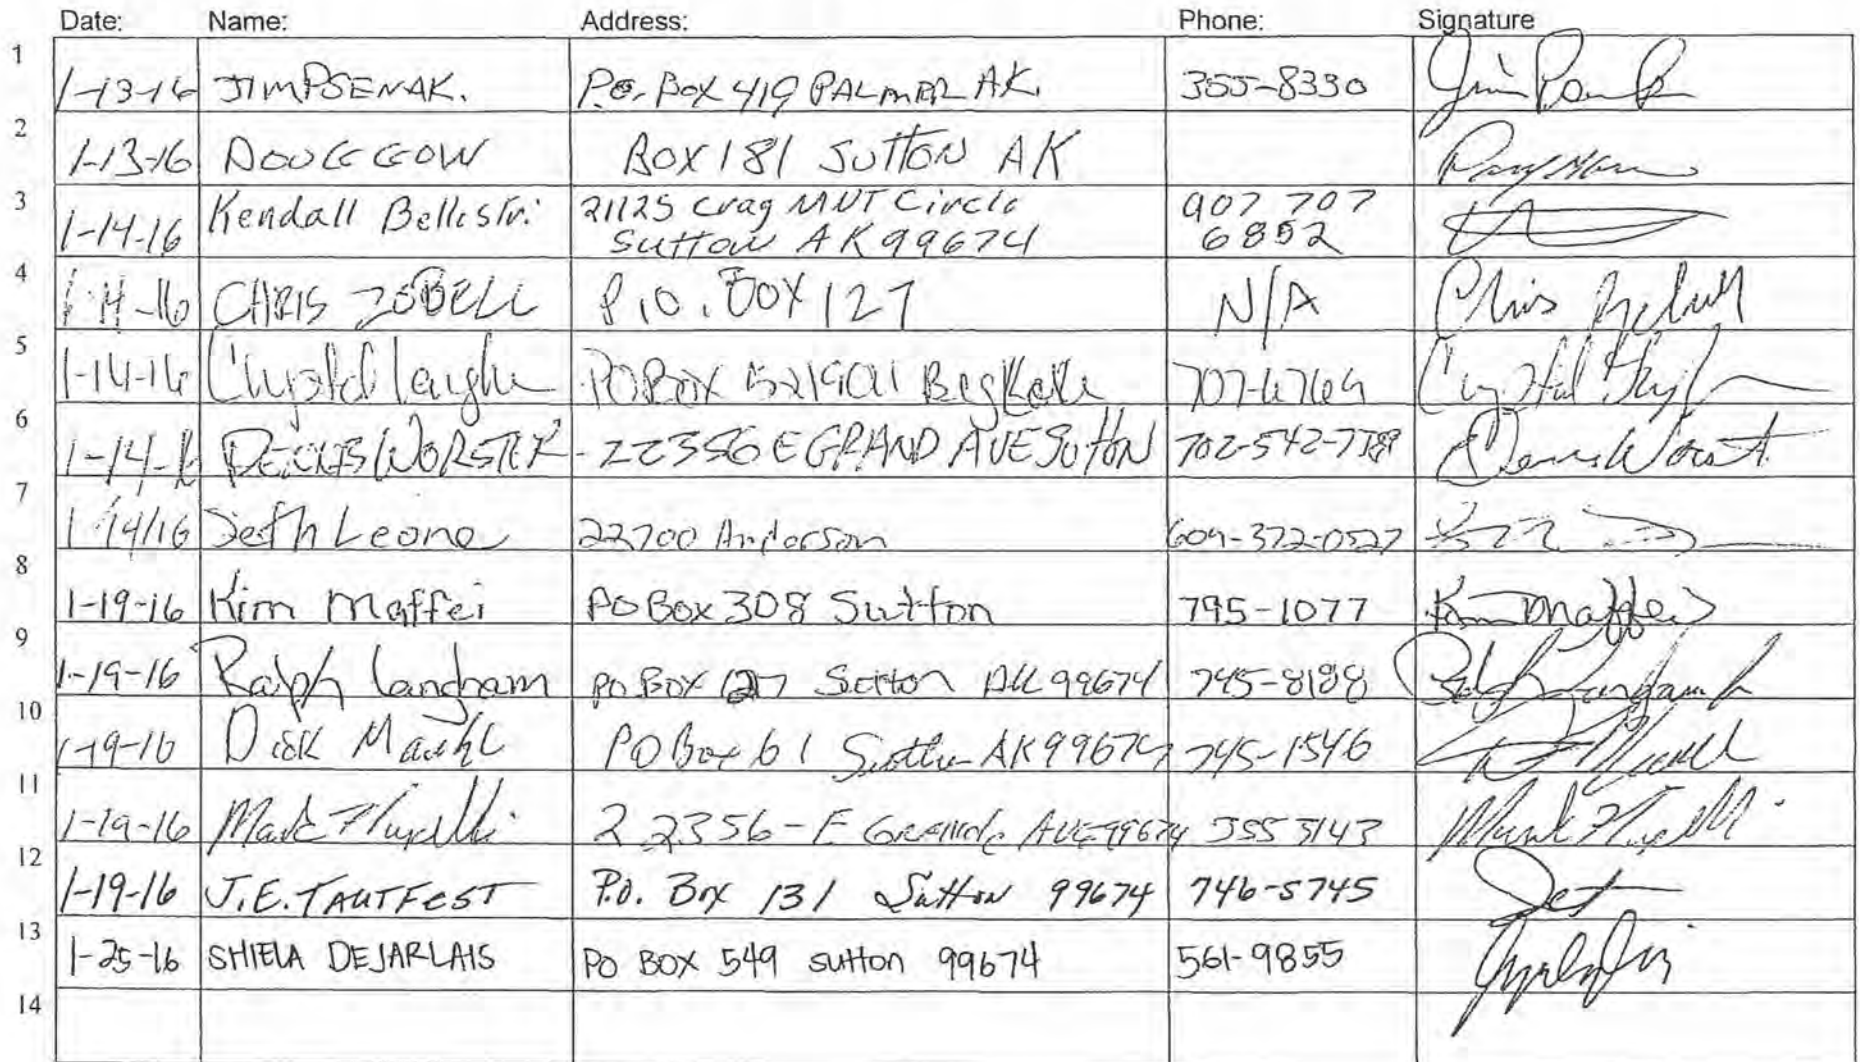 Date: Name: Address: Phone: Signature
1 1-13-16 JIM PSENAK. P.O. BOX 419 PALMER AK. 355-8330
2 1-13-16 DOUG GOW BOX 181 SUTTON AK
3 1-14-16 Kendall Bellistri 21125 Crag MNT Circle 907 707
Sutton AK 99674 6852
4 1-14-16 CHRIS ZOBELL P.O. BOX 127 N/A Chris
5 1-14-16 PO Box Big Lake Crystal
6 1-14-16 DENNIS WORSTER 22356 E GRAND AVE SUTTON 702-542-
7 1-14/16 Seth Leone 22700 Anderson 609-372-0527
8 1-19-16 Kim Maffei PO Box 308 Sutton 795-1077 Kim Maffei
9 1-19-16 Ralph Langham PO BOX Sutton AK 99674 745-8188
10 1-19-16 Dick PO Box 61 Sutton AK 99674 745-1546
11 1-19-16 Mark 22356-E Grande AVE 99674 355 5143 Mark
12 1-19-16 J.E. TAUTFEST P.O. Box 131 Sutton 99674 746-5745 Jet
13 1-25-16 SHIELA DEJARLAIS PO BOX 549 sutton 99674 561-9855
14